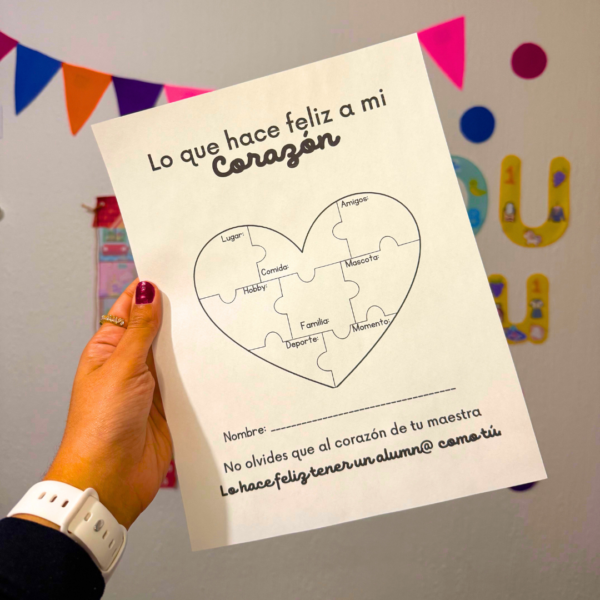 Lo que hace feliz a mi
Corazón
Lugar:
Amigos:
Comida:
Mascota:
Hobby:
Familia:
Deporte:
Momento:
Nombre:
No olvides que al corazón de tu maestra
Lo hace feliz tener un alumn@ como tú.
U
U